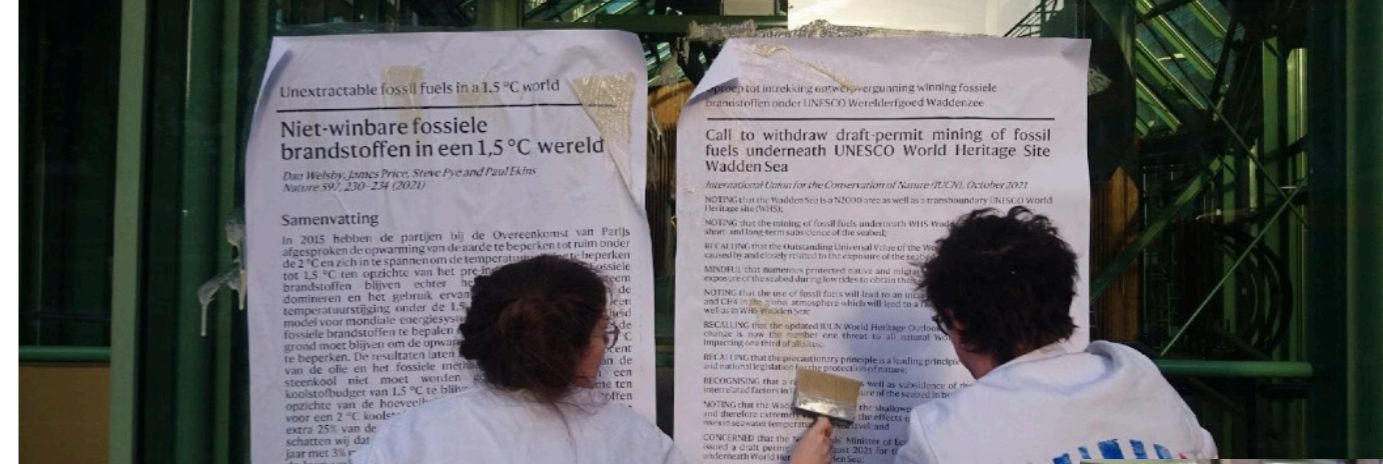 Unextractable fossil fuels in a 1.5 °C world
Niet-winbare fossiele
brandstoffen in een 1,5 °C wereld
Dan Welsby, James Price, Steve Pye and Paul Ekins
Nature 597, 230–234 (2021)
Samenvatting
In 2015 hebben de partijen bij de Overeenkomst van Parijs
afgesproken de opwarming van de aarde te beperken tot ruim onder
de 2 °C en zich in te spannen om de te beperken
tot 1,5 °C ten opzichte van het
brandstoffen blijven echter de
domineren en het gebruik
temperatuurstijging onder de
model voor mondiale
fossiele brandstoffen te bepalen de
grond moet blijven om de °C
te beperken. De resultaten laten
van de olie en het fossiele de
steenkool niet moet worden een
koolstofbudget van 1,5 °C te ten
opzichte van de
voor een 2 °C
extra 25% van de
schatten wij dat
jaar met 3%
tot intrekking winning fossiele
brandstoffen onder UNESCO Werelderfgoed Waddenzee
Call to withdraw draft-permit mining of fossil
fuels underneath UNESCO World Heritage Site
Wadden Sea
International Union for the Conservation of Nature (IUCN), October 2021
NOTING that the Wadden Sea is a N2000 area as well as a transboundary UNESCO World
Heritage site (WHS);
NOTING that the mining of fossil fuels underneath WHS
short- and long-term subsidence of the seabed;
RECALLING that the Outstanding Universal Value of the
caused by and closely related to the exposure of the
MINDFUL that numerous protected native and
exposure of the seabed during low tides to obtain
NOTING that the use of fossil fuels will lead to an
and CH4 in the global atmosphere which will lead to a
well as in WHS Wadden Sea;
RECALLING that the updated IUCN World Heritage Outlook
change is now the number one threat to all natural
impacting one third of all sites;
RECALLING that the precautionary principle is a leading
and national legislation for the protection of nature;
RECOGNISING that a as well as subsidence of the
interrelated factors in of the seabed in
NOTING that the the shallow
and therefore extremely the effects
rises in seawater level; and
CONCERNED that the Minister of
issued a draft permit 2021 for
underneath World Sea;